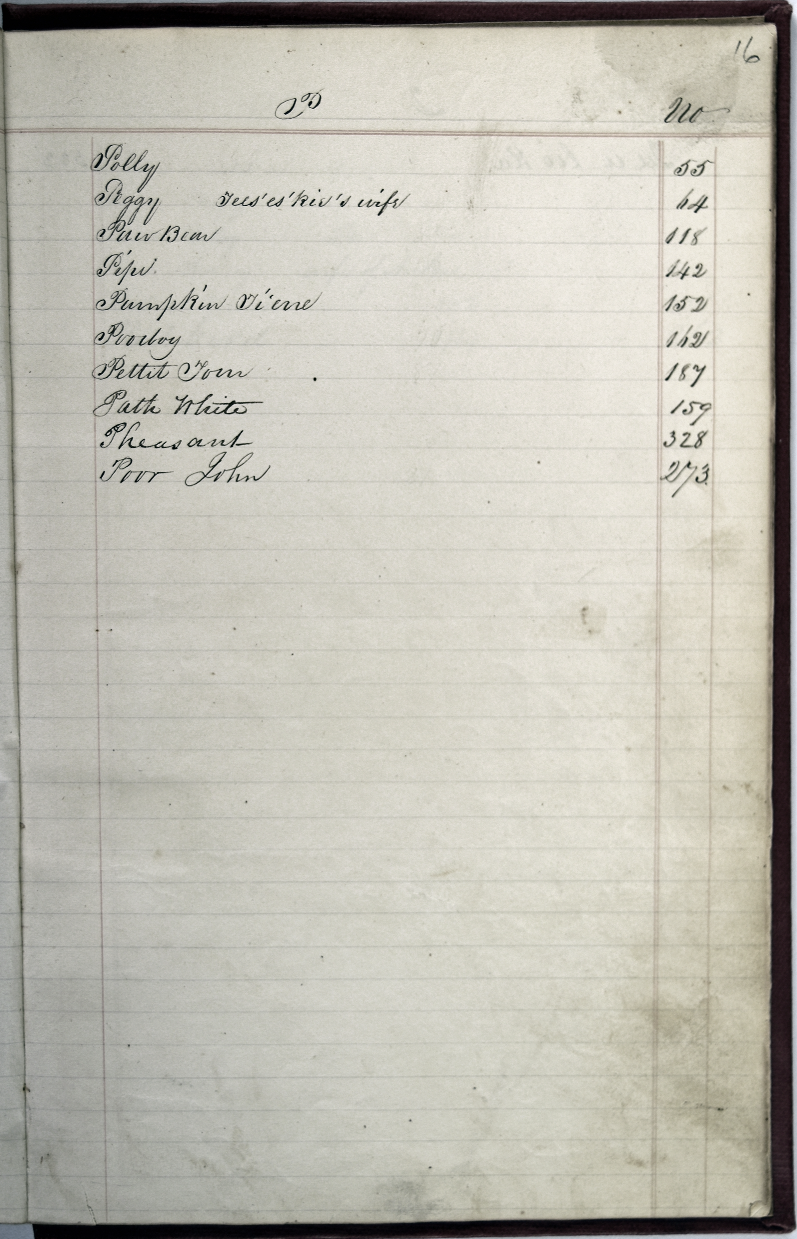 16
P No
Polly 55
Peggy Tees'es'kie's wife 64
Paw Bear 118
Pipe 142
Pumpkin Pierre 152
Poodog 162
Pettit Tom 187
Path White 159
Pheasant 328
Poor John 273